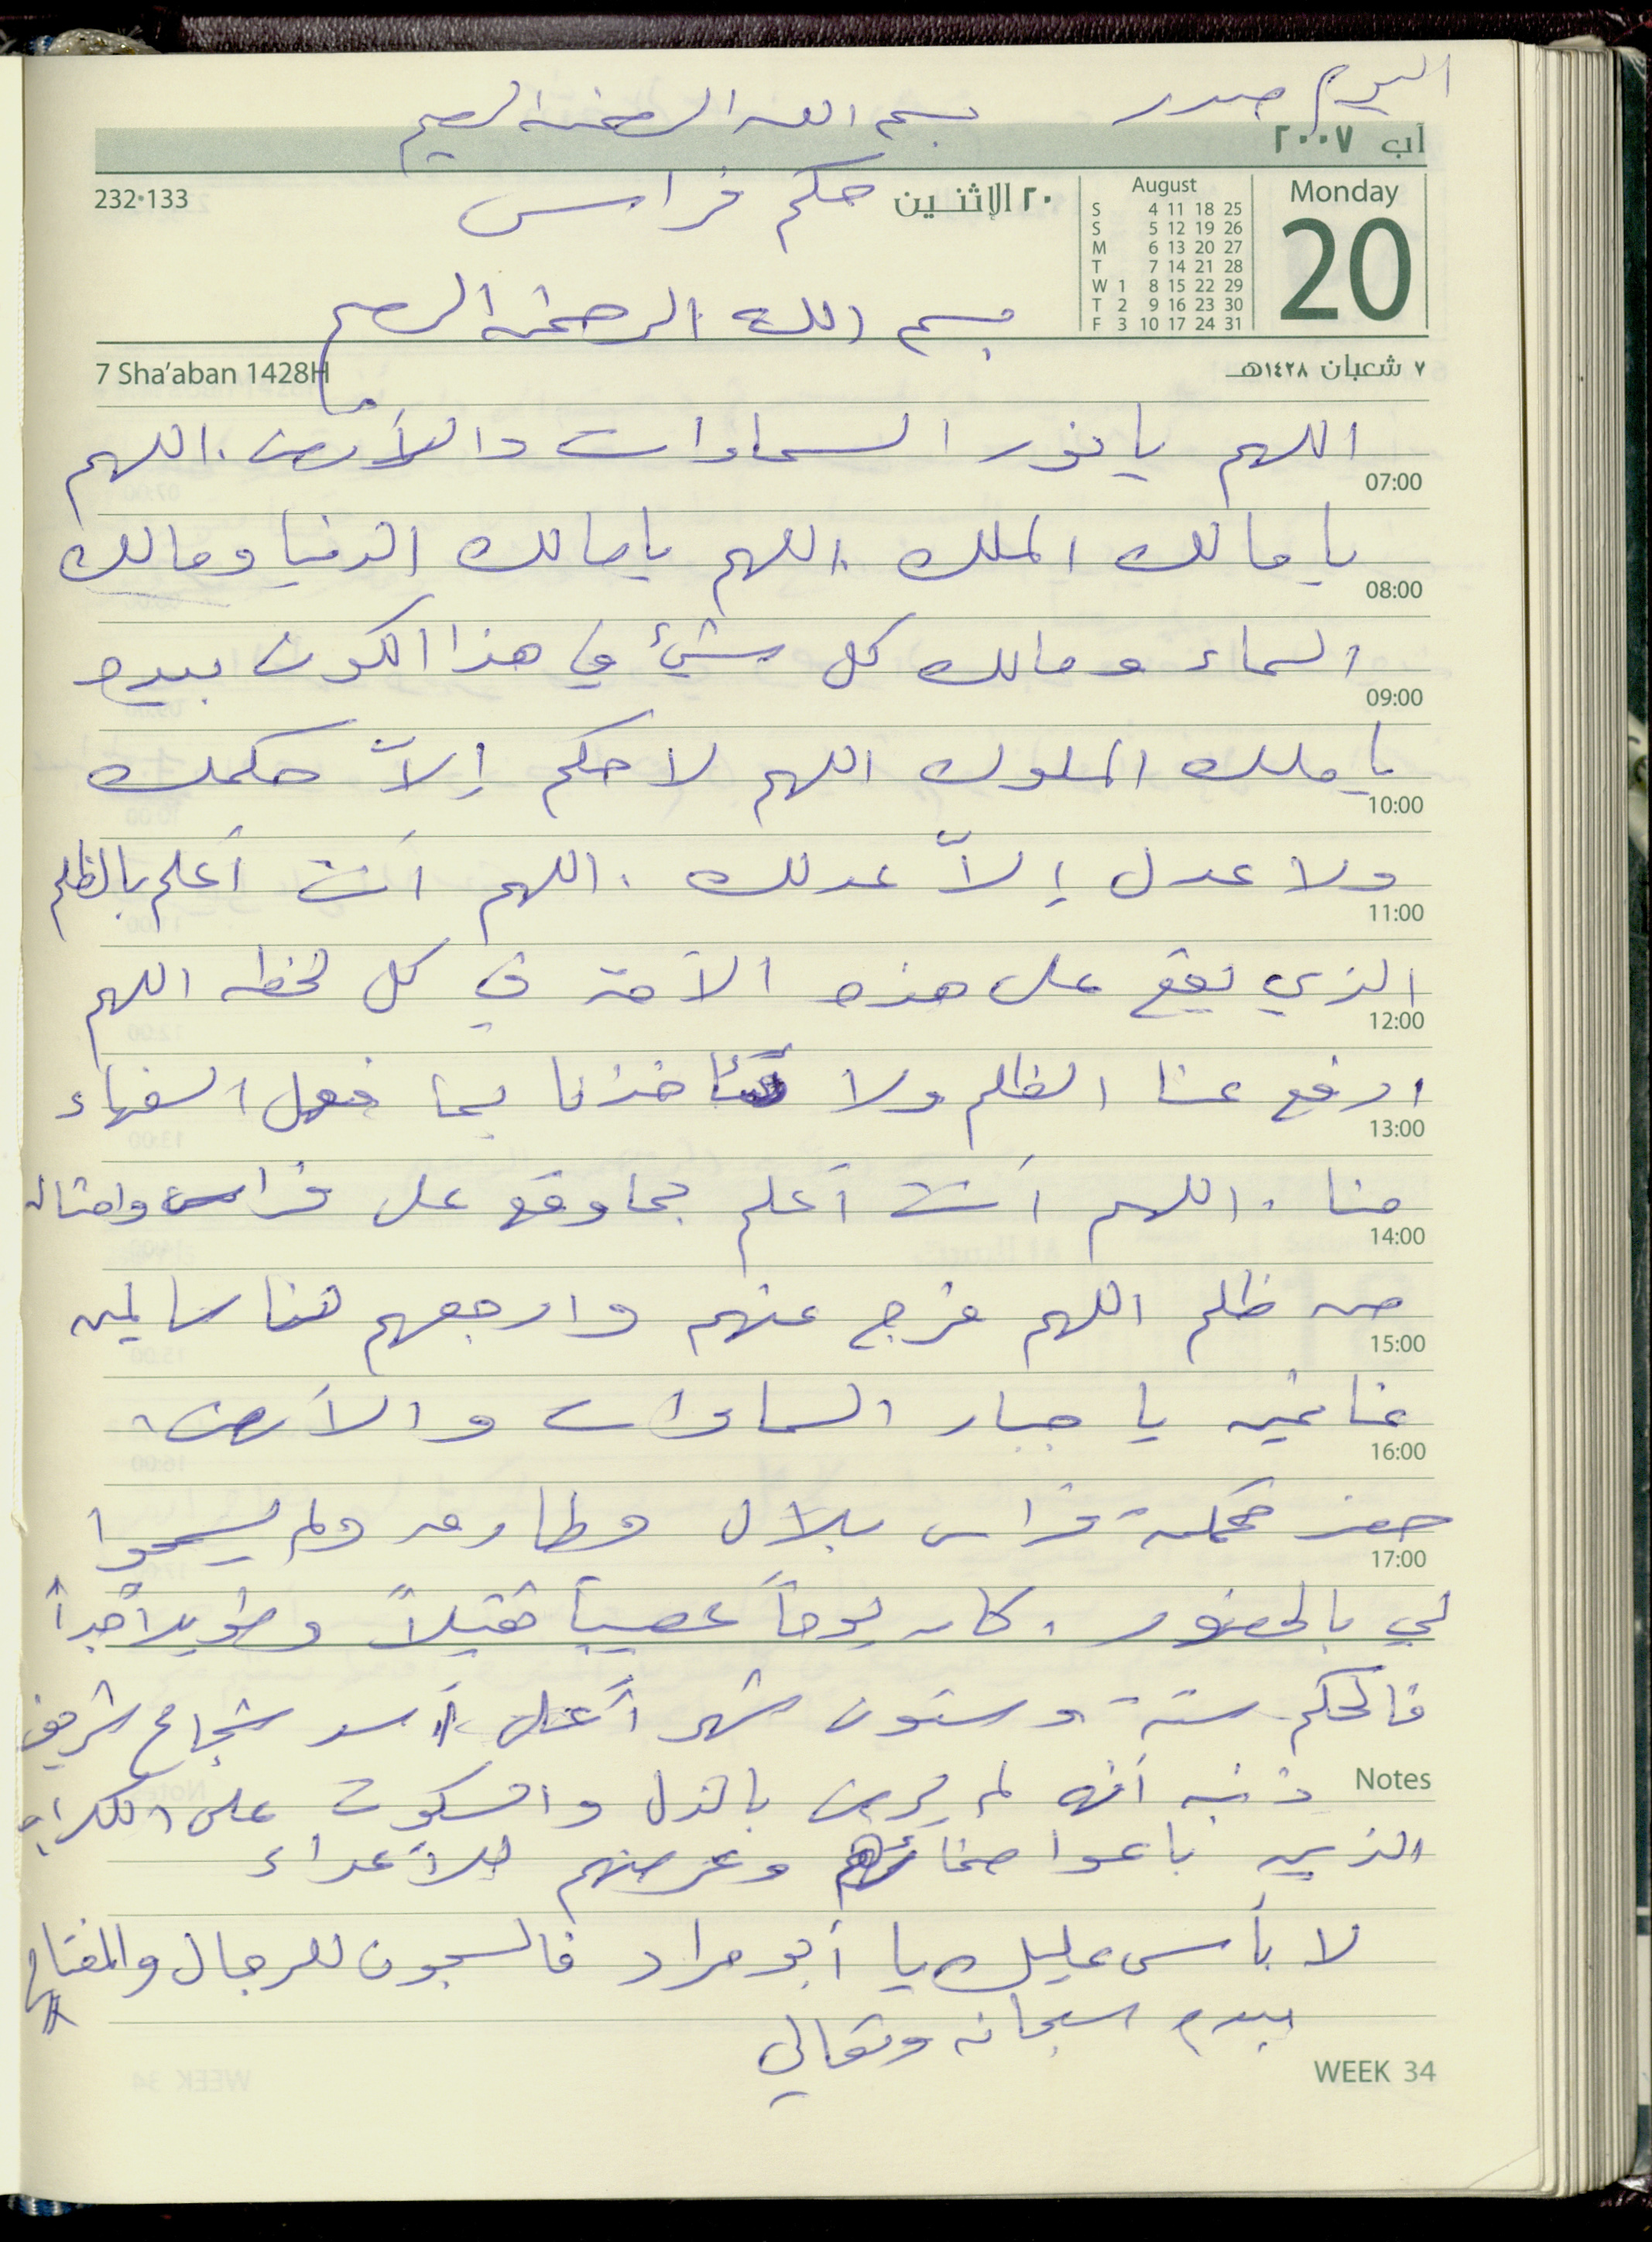 اليوم صدر بسم الله الرحمن الرحيم
آب ٢٠٠٧
Monday
20
August
S 4 11 18 25
S 5 12 19 26
M 6 13 20 27
T 7 14 21 28
W 1 8 15 22 29
T 2 9 16 23 30
F 3 10 17 24 31
٢٠ الإثنين
حكم فراس
232•133
بسم الله الرحمن الرحيم
٧ شعبان ١٤٢٨هـ
7 Sha'aban 1428H
اللهم يا نور السماوات والأرض. اللهم
07:00
يا مالك الملك. اللهم يا مالك الدنيا ومالك
08:00
السماء ومالك كل شئ في هذا الكون بيده
09:00
يا ملك الملوك اللهم لا حكم إلاّ حكمك
10:00
ولا عدل إلاّ عدلك. اللهم أنت أعلم بالظلم
11:00
الذي يقع على هذه الأمة في كل لحظه اللهم
12:00
ارفع عنا الظلم ولا تأخذنا بما فعل السفهاء
13:00
منا. اللهم أنت أعلم بما وقع على فراس وامثاله
14:00
من ظلم اللهم فرج عنهم وارجعهم هنا سالمين
15:00
غانمين يا جبار السماوات والأرض.
16:00
حضر محكمة فراس بلال وطارق ولم يسمحوا
17:00
لي بالحضور. كان يوماً عصيباً ثقيلاً وطويلاً جداً
فالحكم ستة وستون شهر أعلى أسد شجاع شريف
Notes
ذنبه أنه لم يرض بالذل والسكوت على
الذين باعوا ضمائرهم وعرضهم للأعداء
لا بأس عليك يا أبو مراد فالسجون للرجال والمفتاح
بيده سبحانه وتعالى
WEEK 34